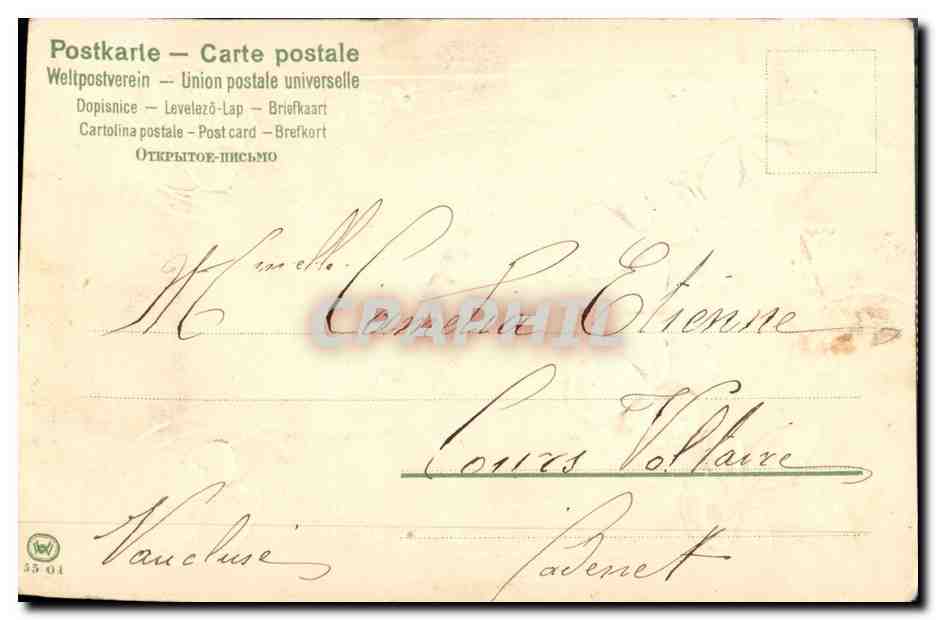 Postkarte — Carte postale
Weltpostverein — Union postale universelle
Dopisnice — Levelező-Lap — Briefkaart
Cartolina postale – Post card – Brefkort
Открытое-письмо
Mlle Camelia Etienne
CPAPHIL
Cours Voltaire
Vaucluse Cadenet
5501